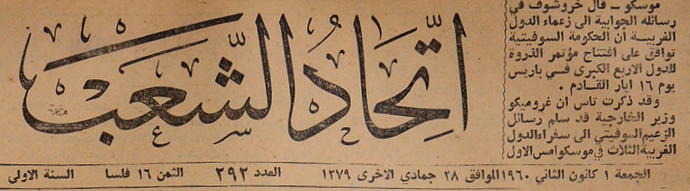 اتحاد الشعب
موسكو ــ قال خروشوف في
رسائله الجوابية الى زعماء الدول
الغربية أن الحكومة السوفيتية
توافق على افتتاح مؤتمر الذروة
للدول الاربع الكبرى في باريس
يوم ١٦ ايار القادم .
وقد ذكرت تاس ان غروميكو
وزير الخارجية قد سلم رسائل
الزعيم السوفيتي الى سفراء الدول
الغربية الثلاث في موسكو امس الاول
الجمعة ١ كانون الثاني ١٩٦٠ الموافق ٢٨ جمادي الاخرى ١٣٧٩ العدد ٢٩٢ الثمن ١٦ فلسا السنة الاولى